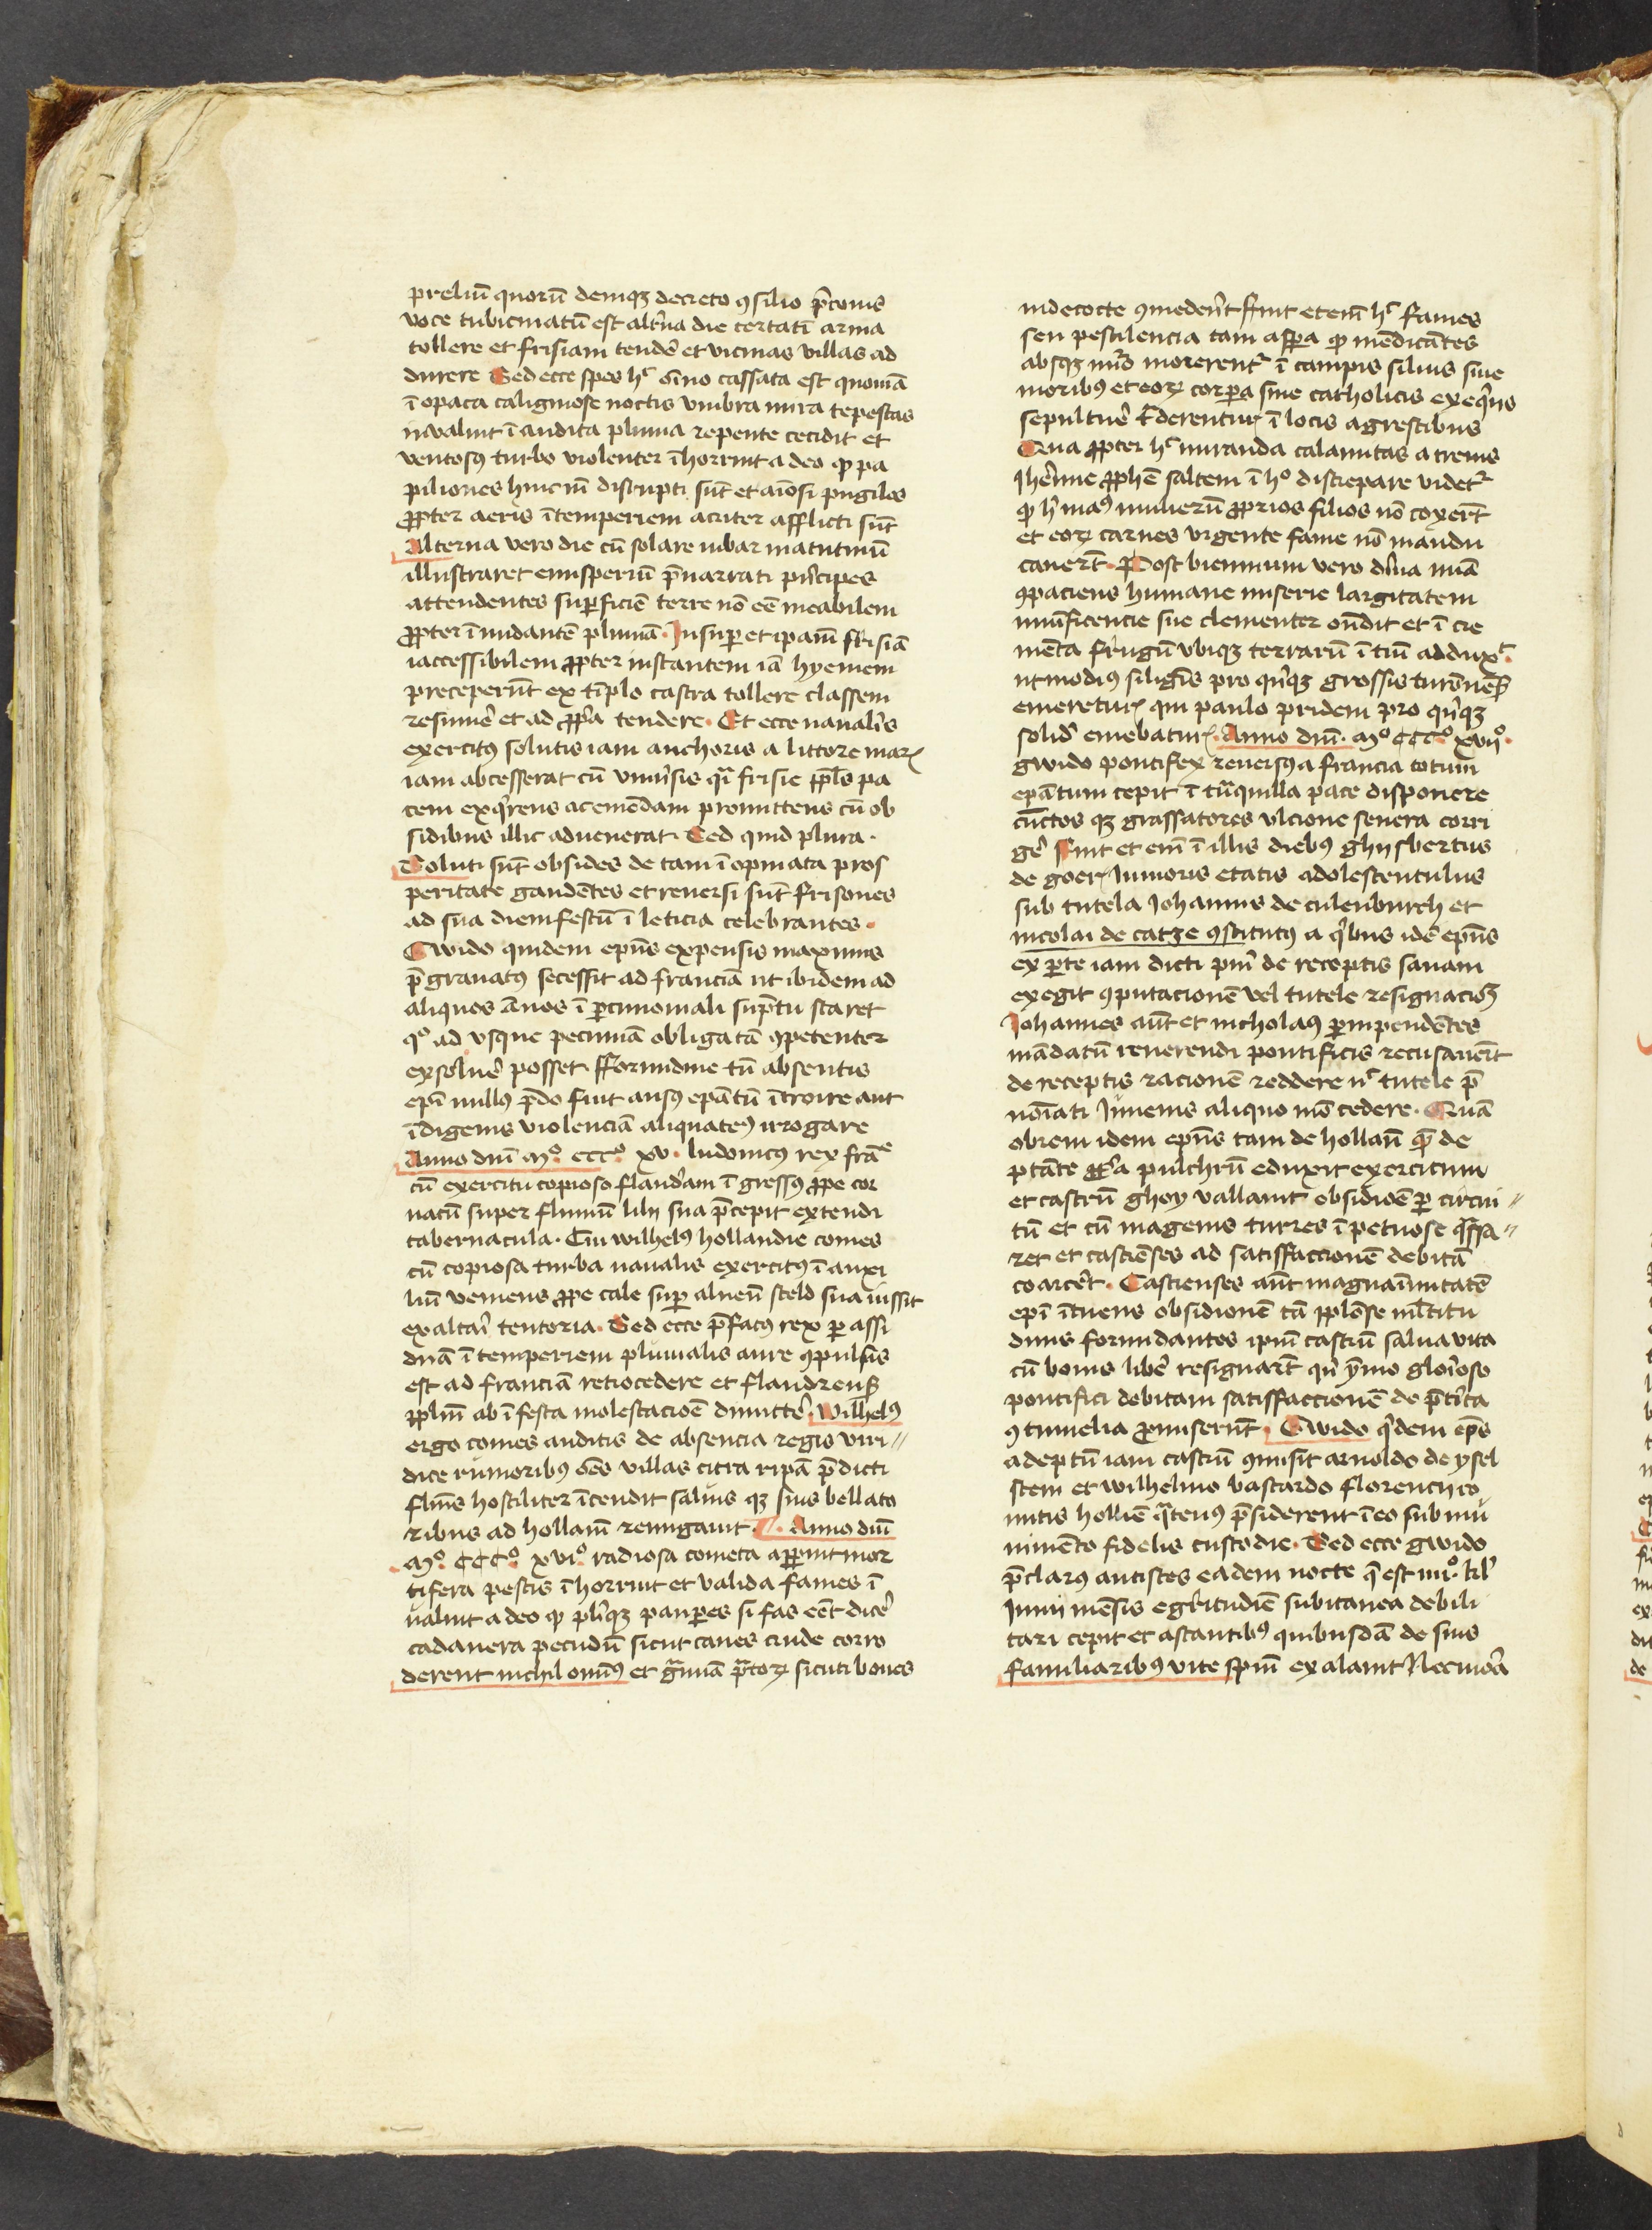 preliū quorū demqʒ decreto ꝯsilio p̄conis
voce tubicinatū est alt̓na die certatī arma
tollere et frisiam tendē et vicinas villas ad
durere Sed ecce spes hͨ oīno cassata est quoniā
ī opaca caliginose noctis vmbra mira tēpestas
inualuit īaudita pluuia repente cecidit et
ventosꝰ turbo violenter īhorruit a deo ꝙ pa
piliones hinc īn disrupti sūt et aīosi pugiles
ꝓpter aeris ītemperiem acriter afflicti sūt
Alterna vero die cū solare iubar matutinū
illustraret emisperiū p̄narrati pⁱncipes
attendentes suꝑficiē terre nō eē meabilem
ꝓpter īnudantē pluuiā. Insuꝑ et ipam̄ frisiā
iaccessibilem ꝓpter instantem iā hyemem
preceperūt ex tīplo castra tollere classem
resumē et ad ꝓpⁱa tendere. Et ecce naualⁱs
exercitꝰ solutis iam anchoris a littore marꝭ
iam abcesserat cū vniu̓sis qᷓ frisie ppl̄s pa
cem exqⁱrens ac emēdam promittens cū ob
sidibus illic aduenerat. Sed quid plura.
Soluti sūt obsides de tam īopinata pros
peritate gaudētes et reuersi sūt frisones
ad sua diem festū ī leticia celebrantes.
Gwido quidem ep̄us expensis maximis
p̄grauatꝰ secessit ad franciā ut ibidem ad
aliquos ānos ī ꝑcimoniali sūptu staret
qͦ ad vsque pecuniā obligatā ꝯpetenter
exsoluē posset fformidine tū absentis
ep̄i nullꝰ p̄do fuit ausꝰ ep̄atū ītroire aut
īdigenis violenciā aliquatēꝰ irrogare
Anno dn̄i mͦ. cccͦ. xv. ludouicꝰ rex frācͤ
cū exercitu copioso flandr̄am īgressꝰ ꝓpe cor
nacū super flumiū lilii sua p̄cepit extendi
tabernacula. Cui wilhelꝰ hollandie comes
cū copiosa turba naualis exercitꝰ ī auxi
liū veniens ꝓpe cale suꝑ alueū sceld sua iussit
exaltari tentoria. Sed ecce p̄fatꝰ rex ꝑ assi
duā ītemperiem pluuialis aure ꝯpulsus
est ad franciā retrocedere et flandrenß
pplm̄ ab īfesta molestacioē dimittē. Wilhelꝰ
ergo comes auditis de absencia regis viri
dice rumoribꝰ oēs villas citra ripā p̄dicti
flum̄s hostiliter ītendit saluis qʒ suis bellato
ribus ad hollam̄ remigauit. C. Anno dn̄i
mͦ. CCCͦ. xviͦ. radiosa cometa apparuit mor
tifera pestis īhorruit et valida fames ī
ualuit a deo ꝙ pleⁱqʒ pauꝑes si fas eēt dicē
cadauera pecudū sicut canes crude corro
derent nichilominꝰ et gᷓmina p̄toꝝ sicuti boues
indecocte ꝯmedent̓ fuit etem̄ hͨ fames
seu pestilencia tam asꝑa ꝙ mēdicātes
absqʒ nūo morerent᷑ ī campis siluis siue
moribꝰ et eoꝝ corꝑa sine catholicis exeqⁱis
sepultuē tderentur ī locis agrestibus
Qua ꝓpter hͨ miranda calamitas a trenis
Iheīme ꝓphē saltem ī hͦ discrepare videt᷑
ꝙ h̓ maꝰ mulierū ꝓprios filios nō coxer̄t
et eoꝝ carnes vrgente fame nō mandu
cauer̄t. Post biennium vero diuina nuā
ꝯpaciens humane miserie largitatem
munificencie sue clementer on̄dit et ī cre
mēta frugū vbiqʒ terrarū ītiū adduxͭ.
ut modiꝰ siligⁱs pro qⁱnqʒ grossis turōneß
emeretur qui paulo pridem pro qⁱnqʒ
solidⁱ emebatur. Anno dn̄i. mͦ CCCͦ. xviiͦ.
gwido pontifex reuersꝰ a francia totum
ep̄atum cepit ī tᷓquilla pace disponere
cūctos qʒ grassatores vlcione seuera corri
gē ffuit et em̄ ī illis diebꝰ ghysbertus
de goerꝭ Iunioris etatis adolescentulus
sub tutela Iohannis de culenburch et
nicolai de catze ꝯstitutꝰ a qⁱbus idē ep̄us
ex ꝑte iam dicti pu̓i de receptis sanam
exegit ꝯputacionē vel tutele resignacioʒ
Iohannes aūt et nicholaꝰ ꝑuipendētes
mādatū reuerendi pontificis recusauer̄t
de receptis racionē reddere nͨ tutele p̄
noīati Iuuenis aliquo mō cedere. Quā
obrem idem ep̄us tam de hollan̄ qᷓ de
ptāte ꝓpⁱa pulchrū eduxit exercitum
et castrū ghoy vallauit obsidioē ꝑ circui
tū et cū magenis turres īpetuose qᷓssa
ret et castrēses ad satisfaccionē debitā
coarcēt. Castrenses aūt magnaīmitatē
ep̄i ītuens obsidionē tā pplōse ml̄titu
dinis formidantes ipm̄ castrū salua vita
cū bonis libē resignar̄t qⁱn ymo gloīoso
pontifici debitam satisfaccionē de p̄tⁱta
ꝯtumelia ꝓmiserūt. Gwido qⁱdem ep̄s
adeptū iam castrū ꝯmisit arnoldo de ysel
stein et wilhelmo bastardo florencii co
mitis hollīe qᷓtenꝰ p̄siderent ī eo sub mu
nimēto fidelis custodie. Sed ecce gwido
p̄clarꝰ antistes eadem nocte qͤ est iiiͦ. kl̓
Iunii mēsis egⁱtudīe subitanea debili
tari cepit et astantibꝰ quibusdā de suis
familiaribꝰ vite spm̄ exalauit Necnōā